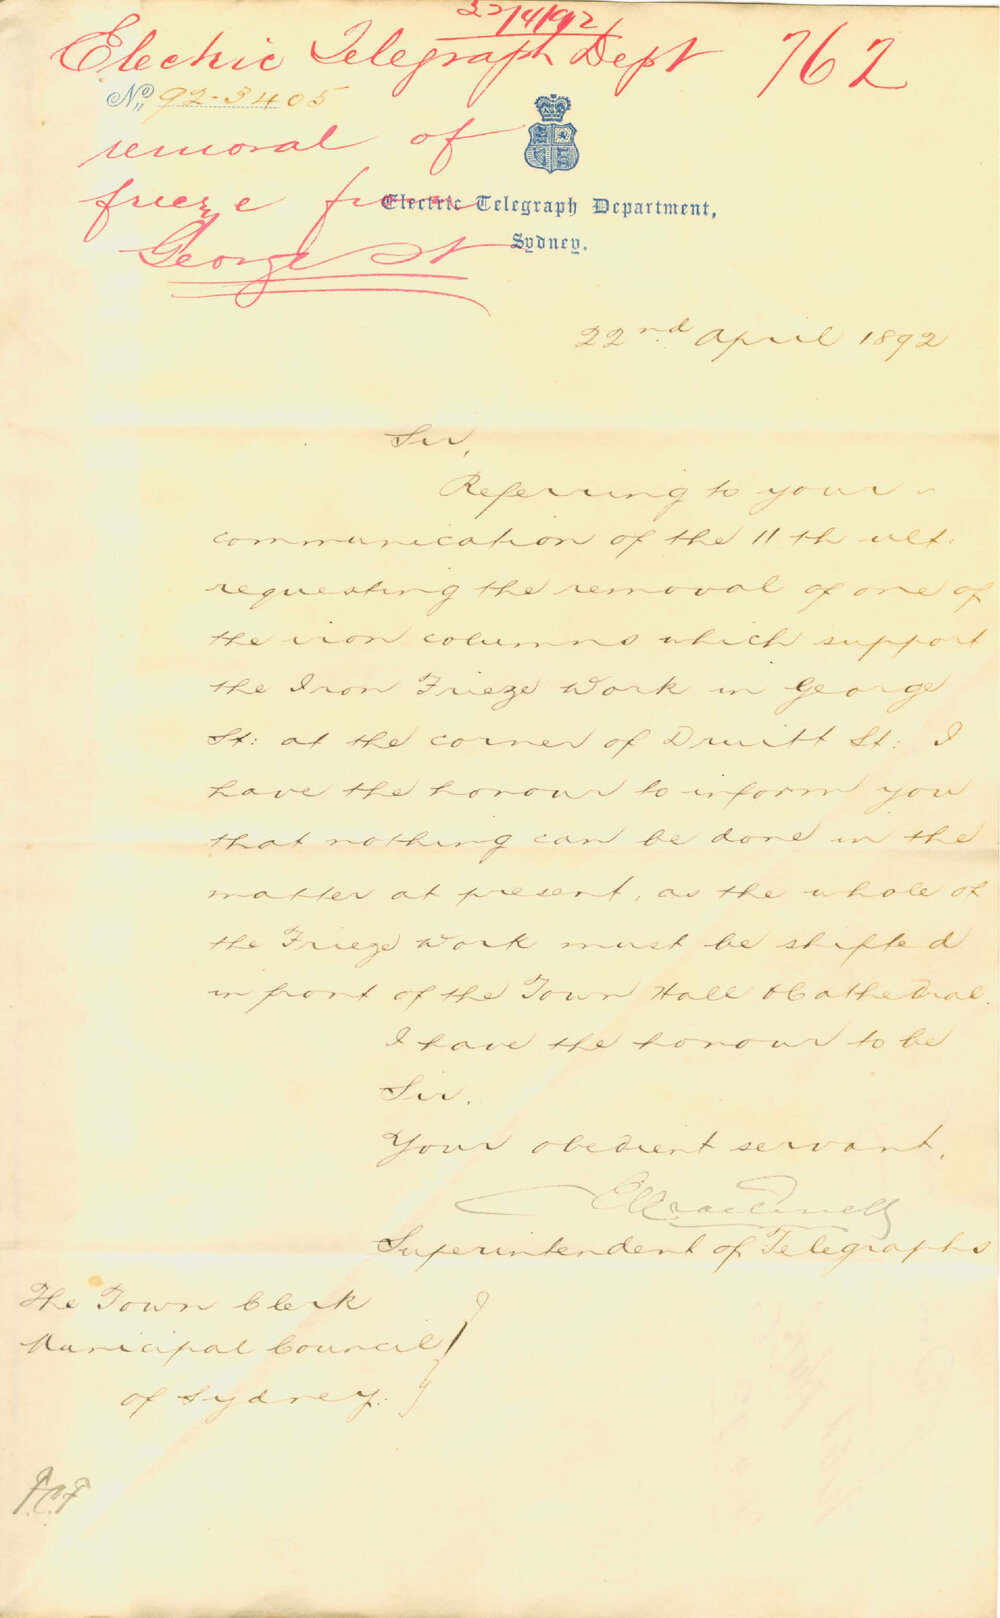 22/4/92
Electric Telegraph Dept 762
No. 92-3405
removal of
frieze from
George St
Electric Telegraph Department,
Sydney.
22nd April 1892
Sir,
Referring to your
communication of the 11th ult:
requesting the removal of one of
the iron columns which support
the Iron Frieze Work in George
St: at the corner of Druitt St: I
have the honour to inform you
that nothing can be done in the
matter at present, as the whole of
the Frieze Work must be shifted
in front of the Town Hall & Cathedral.
I have the honour to be
Sir,
Your obedient servant,
Superintendent of Telegraphs
The Town Clerk
Municipal Council
of Sydney.